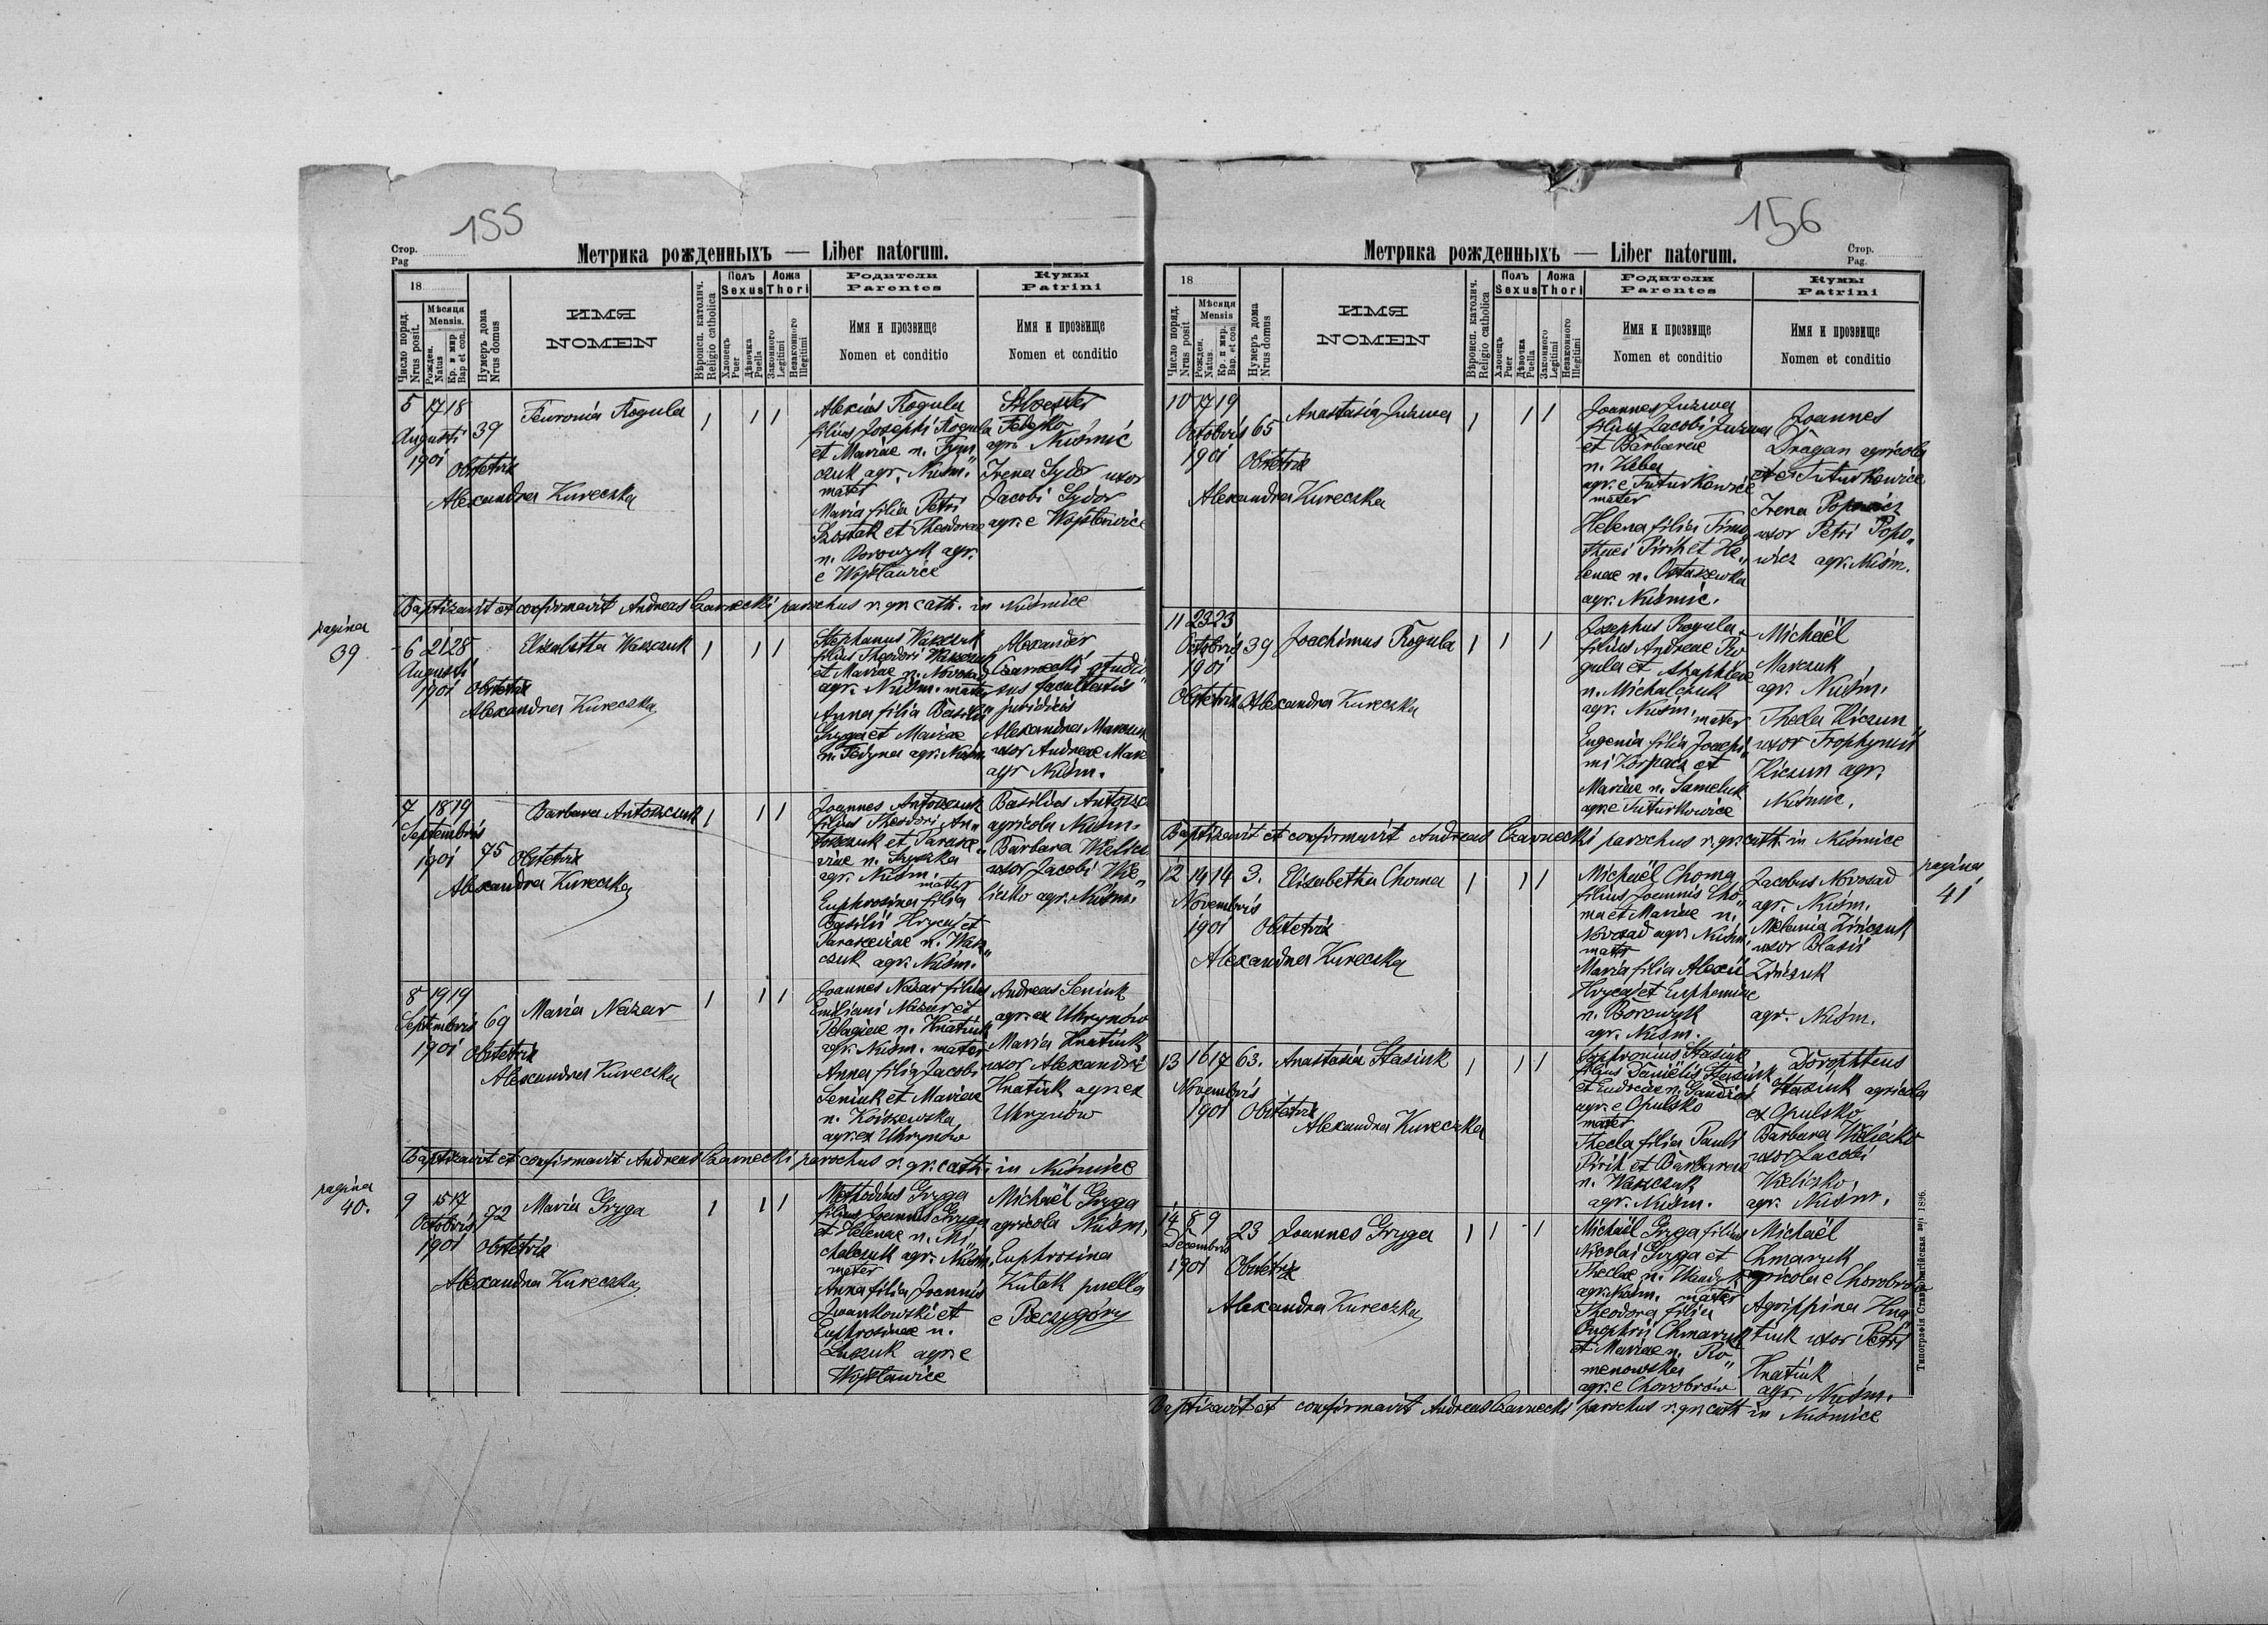 155
Стор.
Pag
Метрика рожденныхъ — Liber natorum.
18
Число поряд.
Nrus posit.
Мѣсяця
Mensis.
Рожден.
Natus
Кр. и мир
Bap et con.
Нумеръ дома
Nrus domus
ИМЯ
NOMEN
Вѣроисп. католич.
Religio catholica
Полъ
Sexus
Хлопець
Puer
Дѣвочка
Puella
Ложа
Thori
Законного
Legitimi
Незаконного
Illegitimi
Родители
Parentes
Имя и прозвище
Nomen et conditio
Кумы
Patrini
Имя и прозвище
Nomen et conditio
5 17 18
Augusti 39
1901
Feuronia Rogula
1 1 1
Obstetrix
Alexandra Kureczka
Alexius Rogula
filius Josephi Rogula
et Mariae n. Tym„
czuk agr. Nuśm.
mater
Maria filia Petri
Szostak et Theodorae
n. Borowzyk agr.
e Wojsławice
Silvester
agr. Nuśmic
Irena Sydor uxor
Jacobi Sydor
agr. e Wojsławice
Baptizavit et confirmavit Andreas Czarnecki parochus r. gr. cath. in Nuśmice
pagina
39
6 21 28
Augusti
1901 Obstetrix
Elisabetha Waszczuk
1 1 1
Alexandra Kureczka
Stephanus Waszczuk
filius Theodori Waszczuk
et Mariae n. Novosad
agr. Nuśm. mater
Anna filia Basilii
Gryga et Mariae
n. Fedyna agr. Nuśm.
Alexander
Czarnecki studio„
sus facultatis
juridicis
Alexandra Marczuk
uxor Andreae Marcz
agr Nuśm.
7 18 19
Septembris
1901 75 Obstetrix
Barbara Antoszczuk
1 1 1
Alexandra Kureczka
Joannes Antoszczuk
filius Theodori An„
toszczuk et Parasce„
viae n. Gryszka
agr. Nuśm.
mater
Euphrosina filia
Basilii Hrycaj et
Parasceviae n. Wasz„
czuk agr. Nuśm.
Basilius Antoszc
agricola Nuśm.
Barbara Wielicz
uxor Jacobi Wie„
liczko agr. Nuśm.
8 19 19
Septembris 69
1901 Obstetrix
Maria Nazar
1 1 1
Alexandra Kureczka
Joannes Nazar filius
Emiliani Nazar et
Pelagiae n. Hnatiuk
agr. Nuśm. mater
Anna filia Jacobi
Seniuk et Mariae
n. Koiszewska
agr. ex Uhrynów
Andreas Seniuk
agr. ex Uhrynów
Maria Hnatiuk
uxor Alexandri
Hnatiuk agr. ex
Uhrynów
Baptizavit et confirmavit Andreas Czarnecki parochus r. gr. cath. in Nuśmice
pagina
40.
9 15 17
Octobris 72
1901 Obstetrix
Maria Gryga
1 1 1
Alexandra Kureczka
Methodius Gryga
filius Joannis Gryga
et Helenae n. Mi
chalczuk agr. Nuśm.
mater
Anna filia Joannis
Iwankowski et
Euphrosinae n.
Łuczuk agr. e
Wojsławice
Michaël Gryga
agricola Nuśm.
Euphrosina
Kutak puella
e Peczygóry
156
Стор.
Pag.
Метрика рожденныхъ — Liber natorum.
18
Число поряд.
Nrus posit
Мѣсяця
Mensis
Рожден.
Natus.
Кр. п мир.
Bap. et con
Нумеръ дома
Nrus domus
ИМЯ
NOMEN
Вѣроисп. католич.
Religio catholica
Полъ
Sexus
Хлопець
Puer
Дѣвочка
Puella
Ложа
Thori
Законного
Legitimi
Незаконного
Illegitimi
Родители
Parentes
Имя и прозвище
Nomen et conditio
Кумы
Patrini
Имя и прозвище
Nomen et conditio
10 17 19
Octobris 65
1901 Obstetrix
Anastasia Juzwa
1 1 1
Alexandra Kureczka
Joannes Juzwa
filius Jacobi Juzwa
et Barbarae
n. Heba
agr. e Tuturkowice
mater
Helena filia Timo
thei Pirih et He„
lenae n. Ostaszewska
agr. Nuśmic.
Joannes
Dragan agricola
ex Tuturkowice
Irena Popowicz
uxor Petri Popo„
wicz agr. Nuśm.
11 23 23
Octobris 39
1901
Joachimus Rogula
1 1 1
Obstetrix Alexandra Kureczka
Josephus Rogula
filius Andreae Ro
gula et Agaphiae
n. Michalczuk
agr. Nuśm.
mater
Eugenia filia Joachi„
mi Korpacz et
Mariae n. Sameluk
agr. e Tuturkowice
Michaël
Marczuk
agr. Nuśm.
Thecla Kiczun
uxor Trophymii
Kiczun agr.
Nuśmic.
Baptizavit et confirmavit Andreas Czarnecki parochus r. gr. cath. in Nuśmice
pagina
41
12 14 14 3.
Novembris
1901 Obstetrix
Elisabetha Choma
1 1 1
Alexandra Kureczka
Michaël Choma
filius Joannis Cho„
ma et Mariae n.
Novosad agr. Nuśm.
mater
Maria filia Alexii
Hrycaj et Euphemiae
n. Borowzyk
agr. Nuśm.
Jacobus Novosad
agr. Nuśm.
Melania Zińczuk
uxor Blasii
Zińczuk
agr. Nuśm.
13 16 17 63.
Novembris
1901 Obstetrix
Anastasia Stasiuk
1 1 1
Alexandra Kureczka
Sophronius Stasiuk
filius Danielis Stasiuk
et Eudociae n. Gandias
agr. e Opulsko
mater
Thecla filia Pauli
Pirih et Barbarae
n. Waszczuk
agr. Nuśm.
Dorophteus
Stasiuk agricola
ex Opulsko
Barbara Wieliczko
uxor Jacobi
Wieliczko,
agr. Nuśm.
14 8 9
Decembris 23
1901 Obstetrix
Joannes Gryga
1 1 1
Alexandra Kureczka
Michaël Gryga filius
Nicolai Gryga et
Theclae n. Wandyk
agr. Nuśm. mater
Theodora filia
Onophrii Chmaruk
et Mariae n. Ro„
menowska
agr. e Chorobrów
Michaël
Chmaruk
agricola e Chorobrów
Agrippina Hna
tiuk uxor Petri
Hnatiuk
agr. Nuśm.
Baptizavit et confirmavit Andreas Czarnecki parochus r. gr. cath in Nuśmice